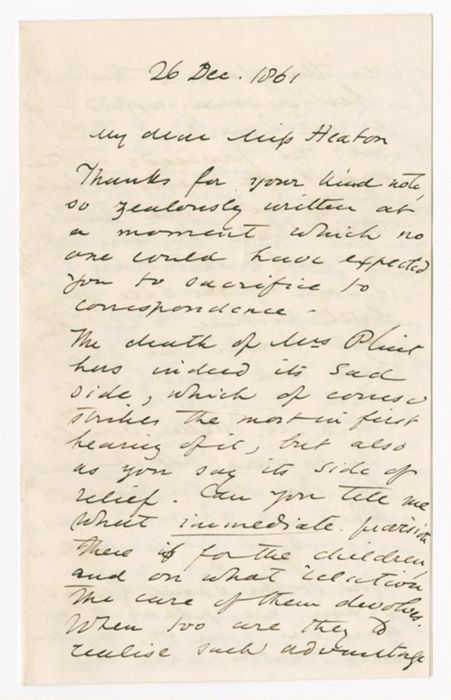 26 Dec. 1861
My dear Miss Heaton
Thanks for your kind note,
so zealously written at
a moment which no
one would have expected
you to sacrifice to
correspondence.
The death of Mrs Plint
has indeed its sad
side, which of course
strikes the most in first
hearing of it, but also
as you say its side of
relief. Can you tell me
what immediate provision
there is for the children,
and on what relation
the care of them devolves.
When too are they to
realise such advantage